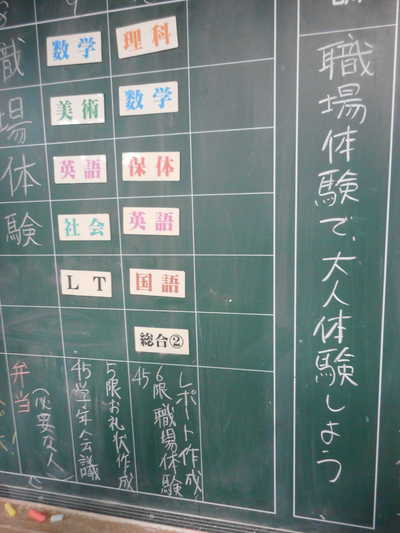 職場体験で、大人体験しよう
理科
数学
保体
英語
国語
総合②
6限 職場体験
レポート作成
45
数学
美術
英語
社会
LT
5限お礼状作成
45 学年会議
職場体験
弁当
(必要な人)